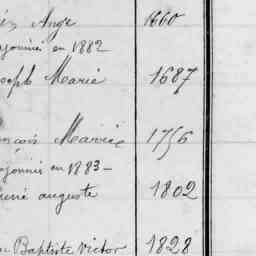 Ange 1660
en 1882
Joseph Marie 1687
François Marie 1756
en 1883 -
René auguste 1802
Baptiste Victor 1828